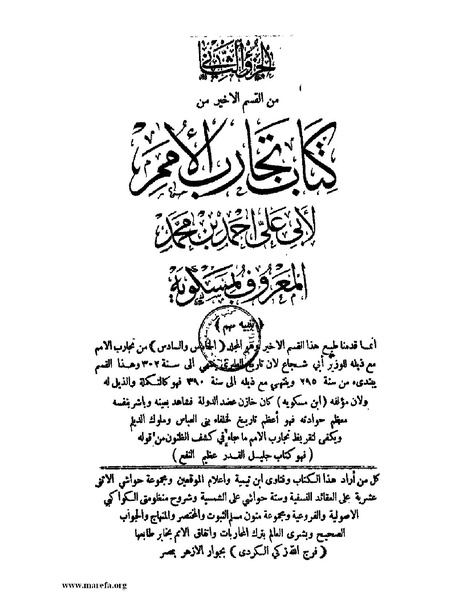 الجزؤ الثاني
من القسم الاخير من
كتاب تجارب الأمم
لأبي علي احمد بن محمد
المعروف بمسكويه
( تنبيه مهم )
انما قدمنا طبع هذا القسم الاخير وهو المجلد ( الخامس والسادس ) من تجارب الامم
مع ذيله للوزير أبي شجاع لان تاريخ الطبري ينتهي الى سنة ٣٠٢ وهذا القسم
يبتدىء من سنة ٢٩٥ وينتهي مع ذيله الى سنة ٣٩٠ فهو كالتكملة والذيل له
ولان مؤلفه ( ابن مسكويه ) كان خازن عضد الدولة فشاهد بعينه وباشر بنفسه
معظم حوادثه فهو أعظم تاريخ لخلفاء بني العباس وملوك الديلم
ويكفي لتقريظ تجارب الامم ما جاء في كشف الظنون من قوله
( فهو كتاب جليل القدر عظيم النفع )
كل من أراد هذا الكتاب وفتاوى ابن تيمية وأعلام الموقعين ومجموعة حواشي الاثنى
عشرية على العقائد النسفية وستة حواشي على الشمسية وشروح منظومتى الكواكبي
الاصولية والفروعية ومجموعة متون مسلم الثبوت والمختصر والمنهاج والجواب
الصحيح وبشرى العالم بترك المحاربات واتفاق الامم يخابر طابعها
( فرج الله زكي الكردى ) بجوار الازهر بمصر
www.marefa.org